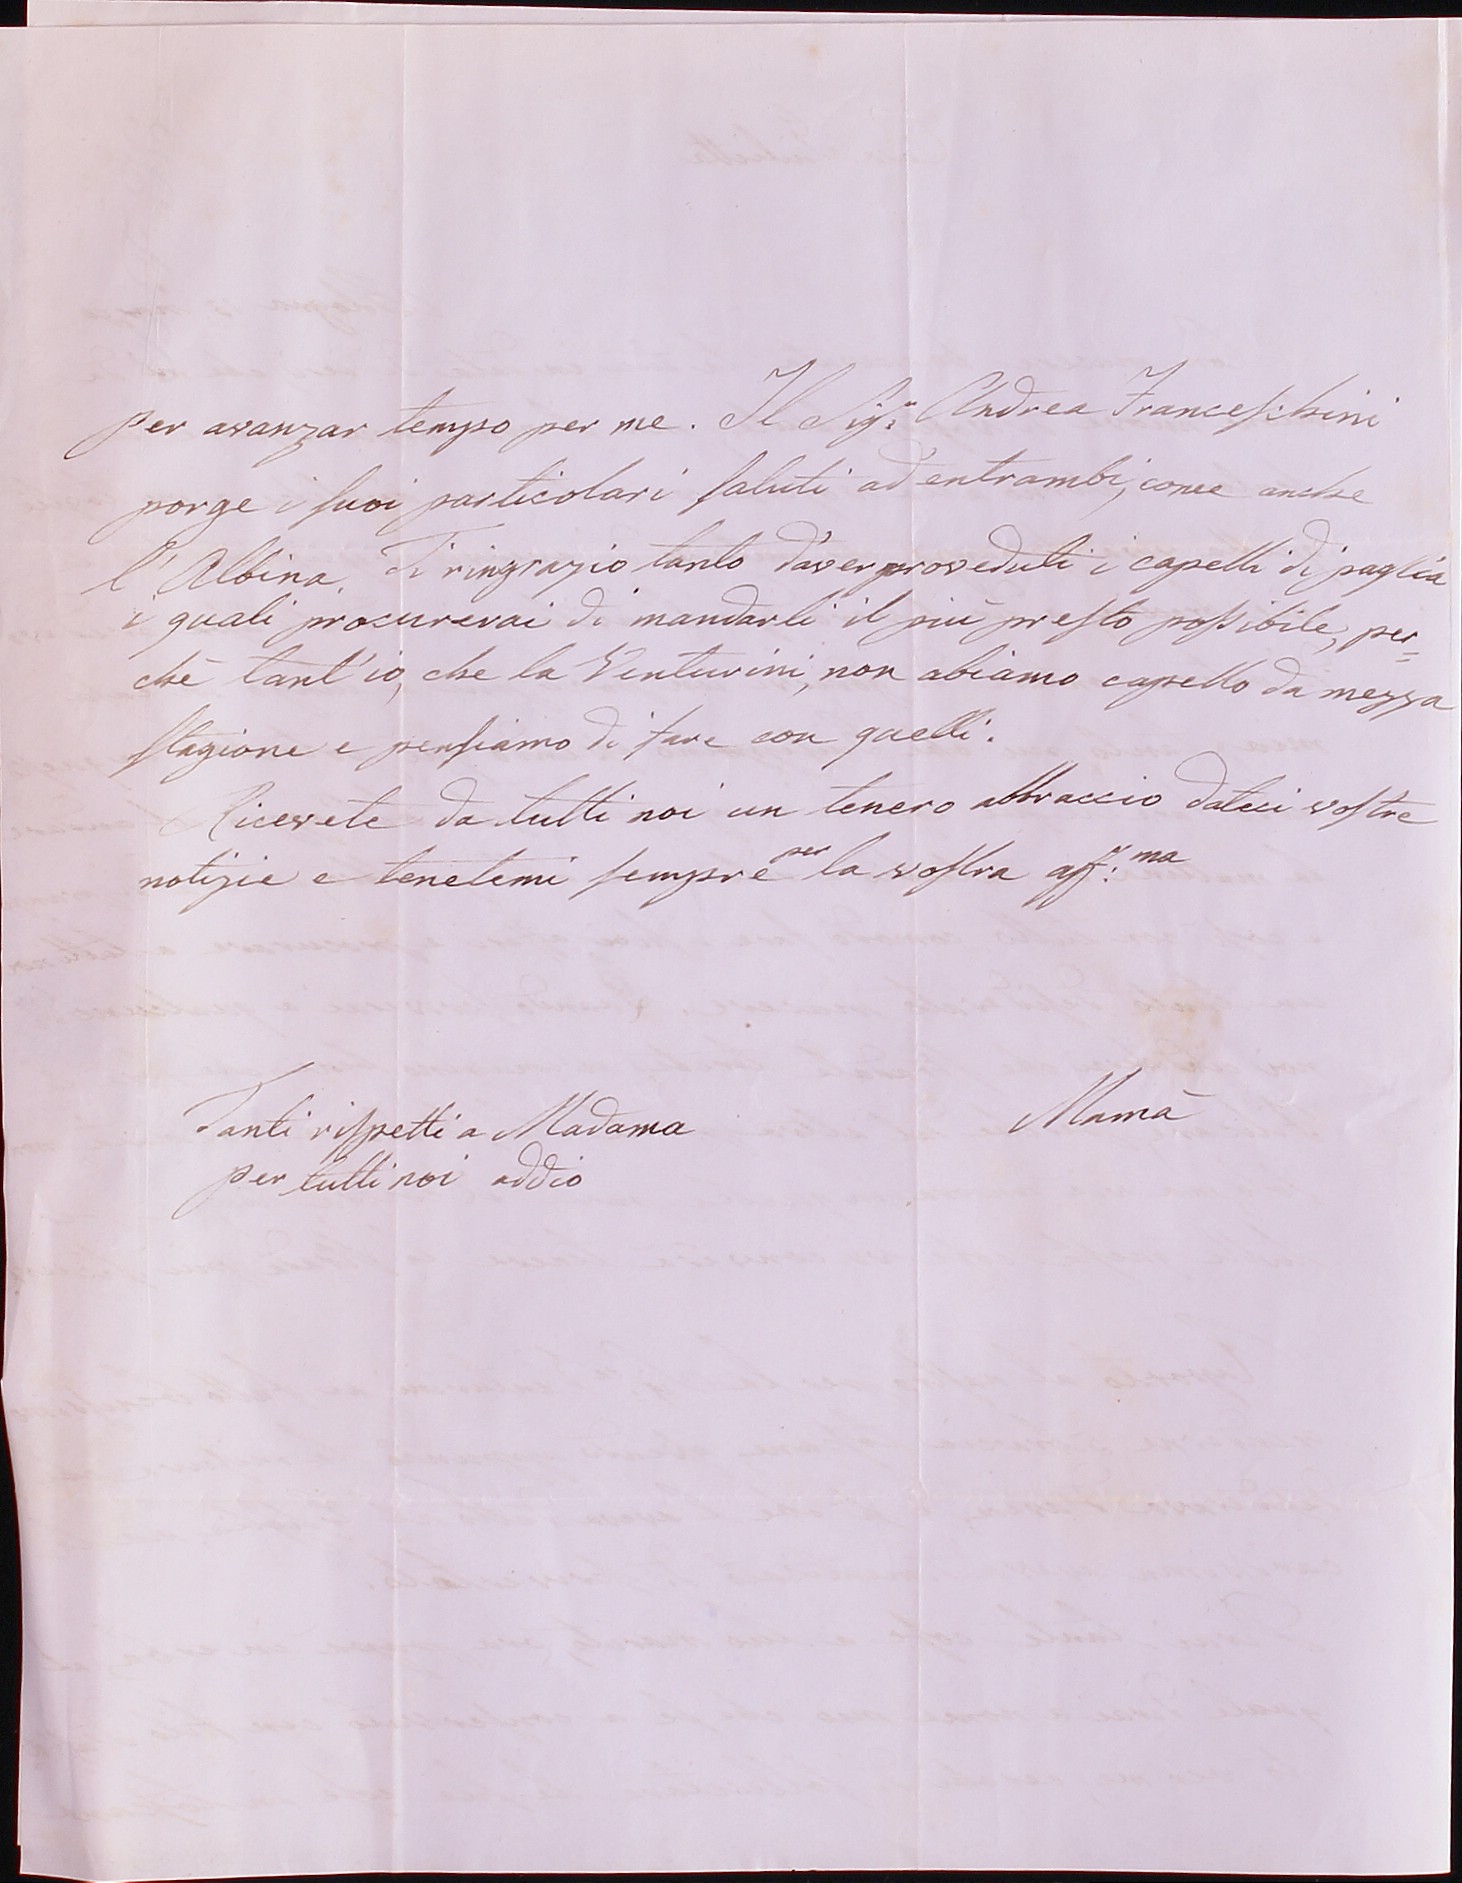 per avanzar tempo per me. Il Sig.r Andrea Franceschini
porge i suoi particolari saluti ad entrambi, come anche
l'Albina. Ti ringrazio tanto d'aver proveduti i capelli di paglia
i quali procurerai di mandarli il più presto possibile, per=
chè tant'io, che la Venturini, non abiamo capello da mezza
stagione e pensiamo di fare con quelli.
Ricevete da tutti noi un tenero abbraccio dateci vostre
notizie e tenetemi sempre per la vostra aff:ma
Mamà
Tanti rispetti a Madama
per tutti noi addio